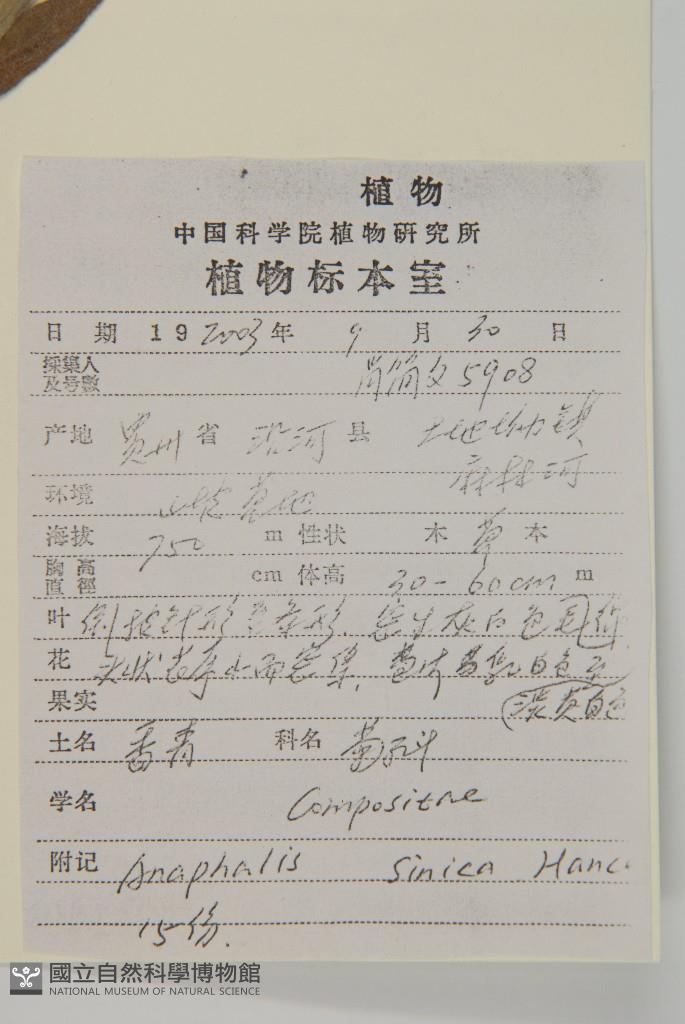 植物
中国科学院植物研究所
植物标本室
日 期 19 2003 年 9 月 30 日
採集人
及号数 简文 5908
产地 贵州 省 沿河 县
麻林河
环境 山坡草地
海拔 750 m 性状 木 草 本
胸高
直徑 cm 体高 30-60cm m
叶 倒披针形 条形, 密生灰白色
花 头状花序小而密集,
果实 淡黄白色
土名 香青 科名 菊科
学名 Compositae
附记 Anaphalis sinica Hance
15份.
國立自然科學博物館
NATIONAL MUSEUM OF NATURAL SCIENCE